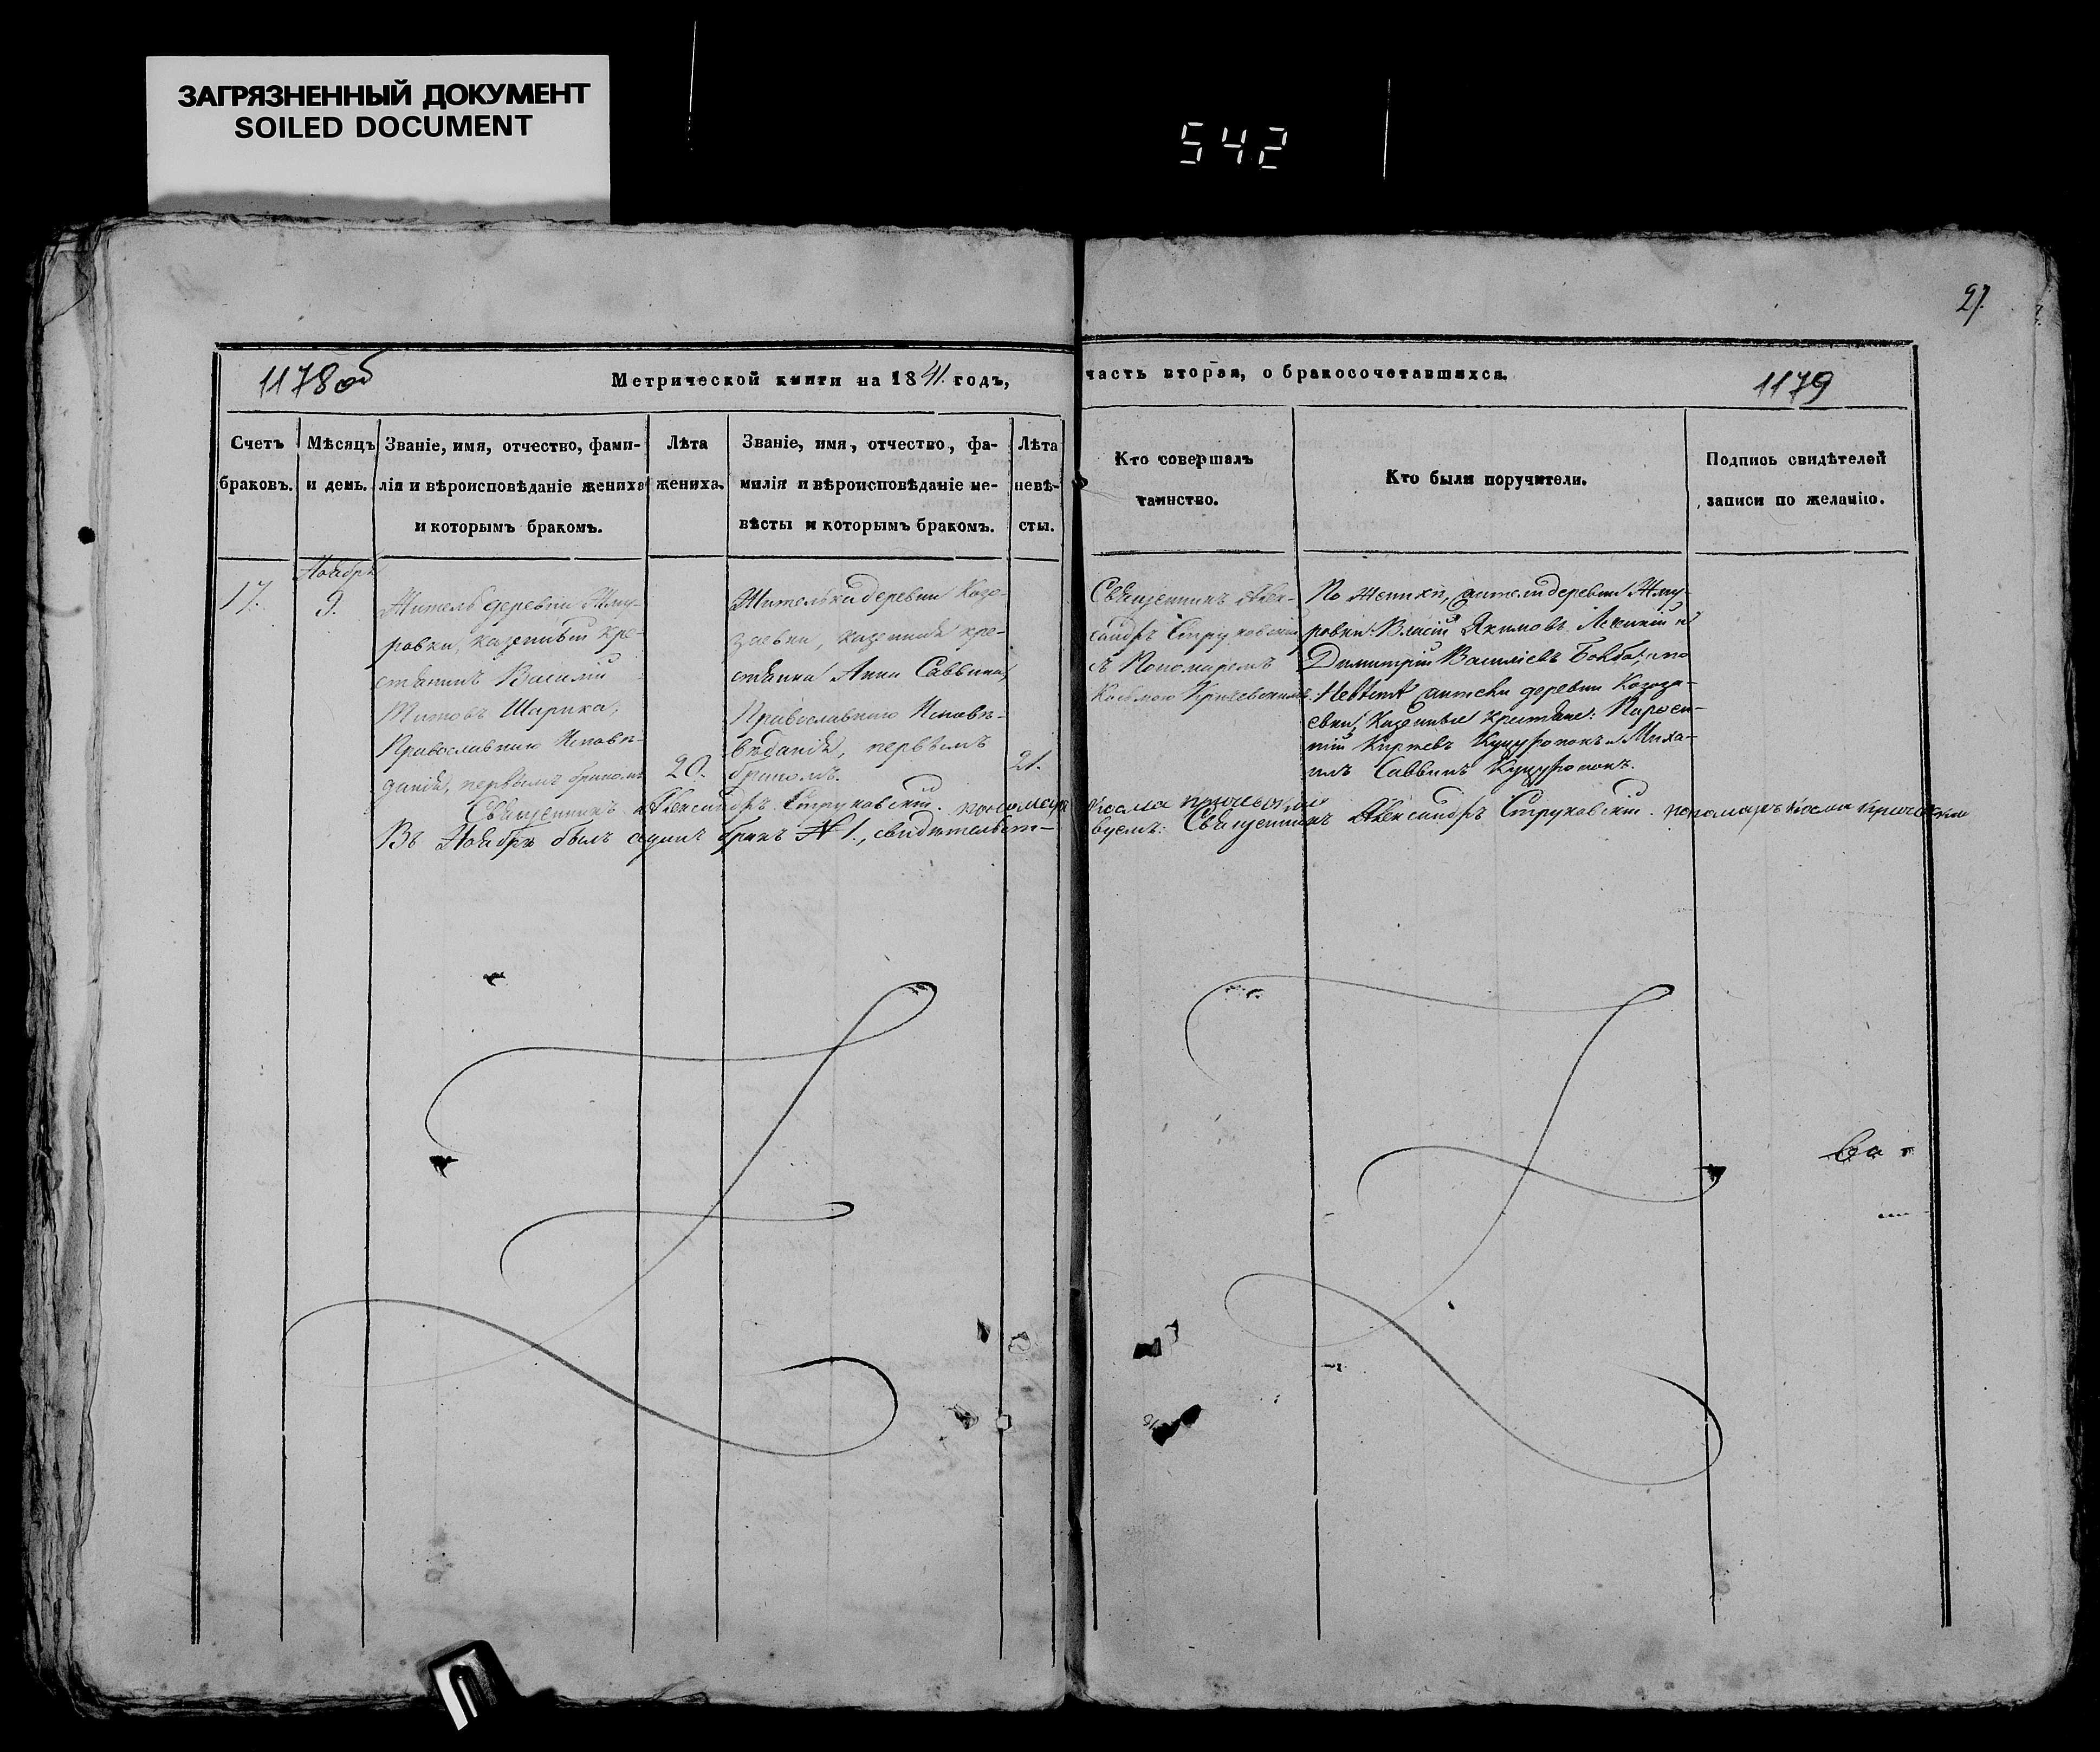 ЗАГРЯЗНЕННЫЙ ДОКУМЕНТ
SOILED DOCUMENT
542
27.
1178 об
Метрической книги на 1841. годъ,
часть вторая, о бракосочетавшихся.
1179
Счетъ
браковъ.
Мѣсяцъ
и день.
Званіе, имя, отчество, фами-
лія и вѣроисповѣданіе жениха
и которымъ бракомъ.
Лѣта
жениха.
Званіе, имя, отчество, фа-
милія и вѣроисповѣданіе не-
вѣсты и которымъ бракомъ.
Лѣта
невѣ-
сты.
Кто совершалъ
таинство.
Кто были поручители.
Подпись свидѣтелей
записи по желанію.
17.
Ноября
9.
Житель деревни
ровки, казенный кре-
стянинъ Василій
Титовъ Шарика,
Православнаго Исповѣ-
данія, первымъ бракомъ
20.
Жителька деревни Козо-
заевки, казенная кре-
стянка Анна Саввина,
Православнаго Исповѣ-
вѣданія, первымъ
бракомъ.
21.
Священникъ Алек-
сандръ Струковскій
съ Пономаремъ
Козьмою
По женихѣ, жители деревни
ровки: Власій Якимовъ и
Димитрій Василіевъ по
Невѣстѣ жители деревни Козоза-
евки, Казенные крестяне:
Миха-
илъ Саввинъ
Священникъ Александръ Струковскій. пономарь Косма
Въ Ноябрѣ былъ одинъ бракъ № 1., свидѣтельст-
вуемъ: Священникъ Александръ Струковскій. пономаръ Косма